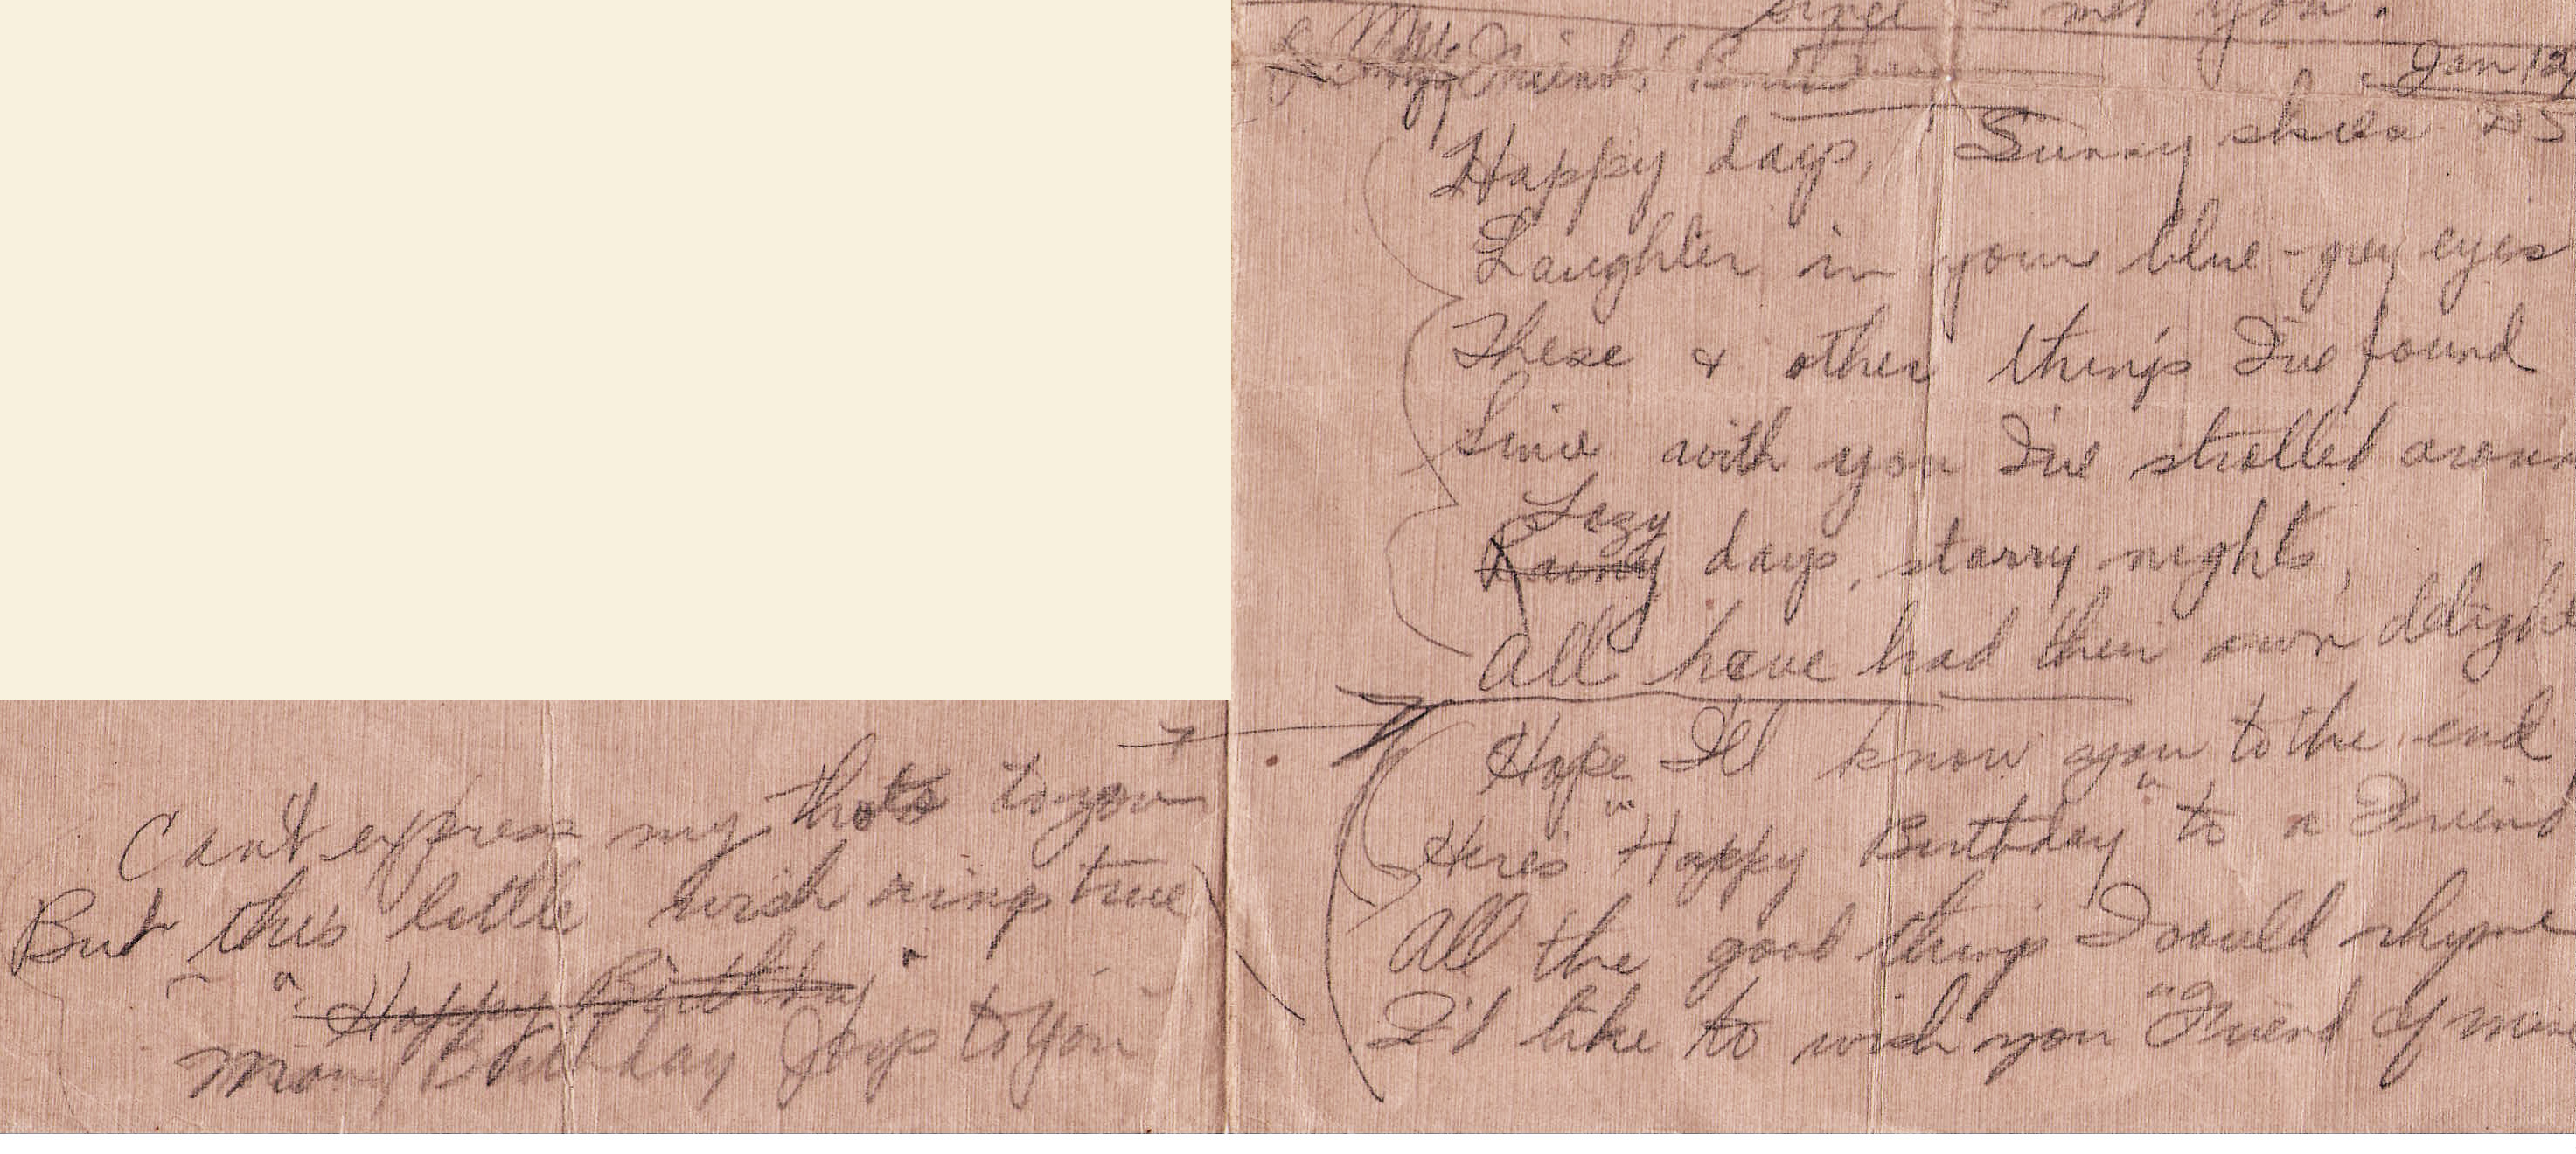 since I met you.
Friend's Birthday
Jan 12
Happy days, Sunny skies
Laughter in your blue-grey eyes
These & other things I've found
Since with you I've strolled aroun
Lazy
Rainy days, starry nights,
All have had their own delight
Hope I'll know you to the end
Here's "Happy Birthday" to a Friend
All the good things I could rhyme
I'd like to wish you "Friend of mine
Can't express my thots to you
But this little wish rings true
"Happy Birthday"
Many Birthday Joys to You